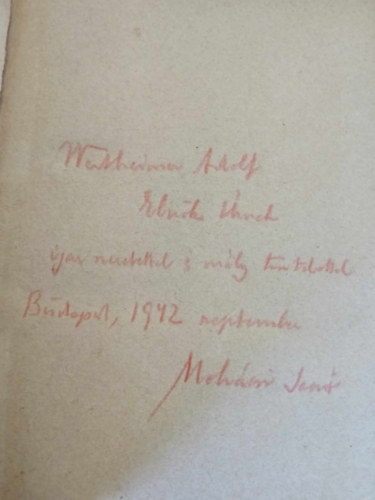 Wertheimer Adolf
Elnök Úrnak
igaz szeretettel s mély tisztelettel
Budapest, 1942 szeptember
Mohácsi Jenő